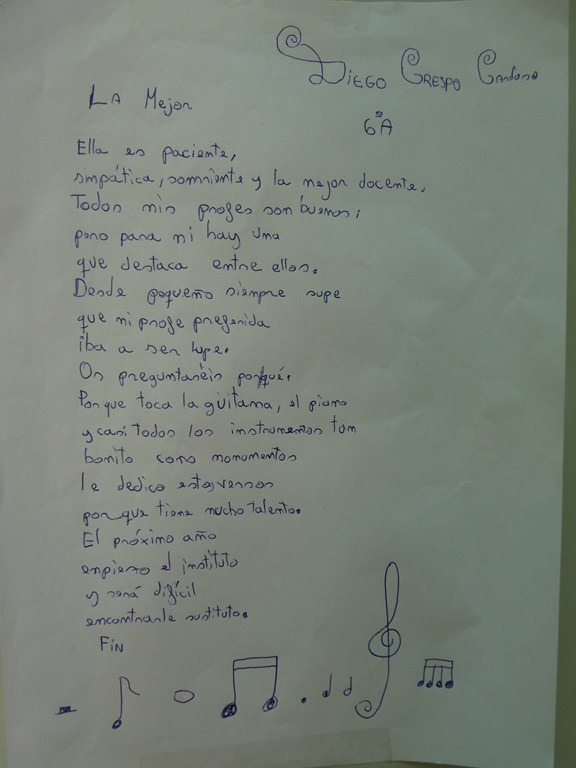 Diego Crespo Cardoso
6ºA
La Mejor
Ella es paciente,
simpática, sonriente y la mejor docente.
Todos mis profes son buenos;
pero para mi hay una
que destaca entre ellos.
Desde pequeño siempre supe
que mi profe preferida
iba a ser lupe.
Os preguntaréis porqué.
Porque toca la guitarra, el piano
y casi todos los instrumentos tan
bonito como monumentos
le dedico estos versos
porque tiene mucho talento.
El próximo año
enpiezo el instituto
y será difícil
encontrarle sustituto.
Fin